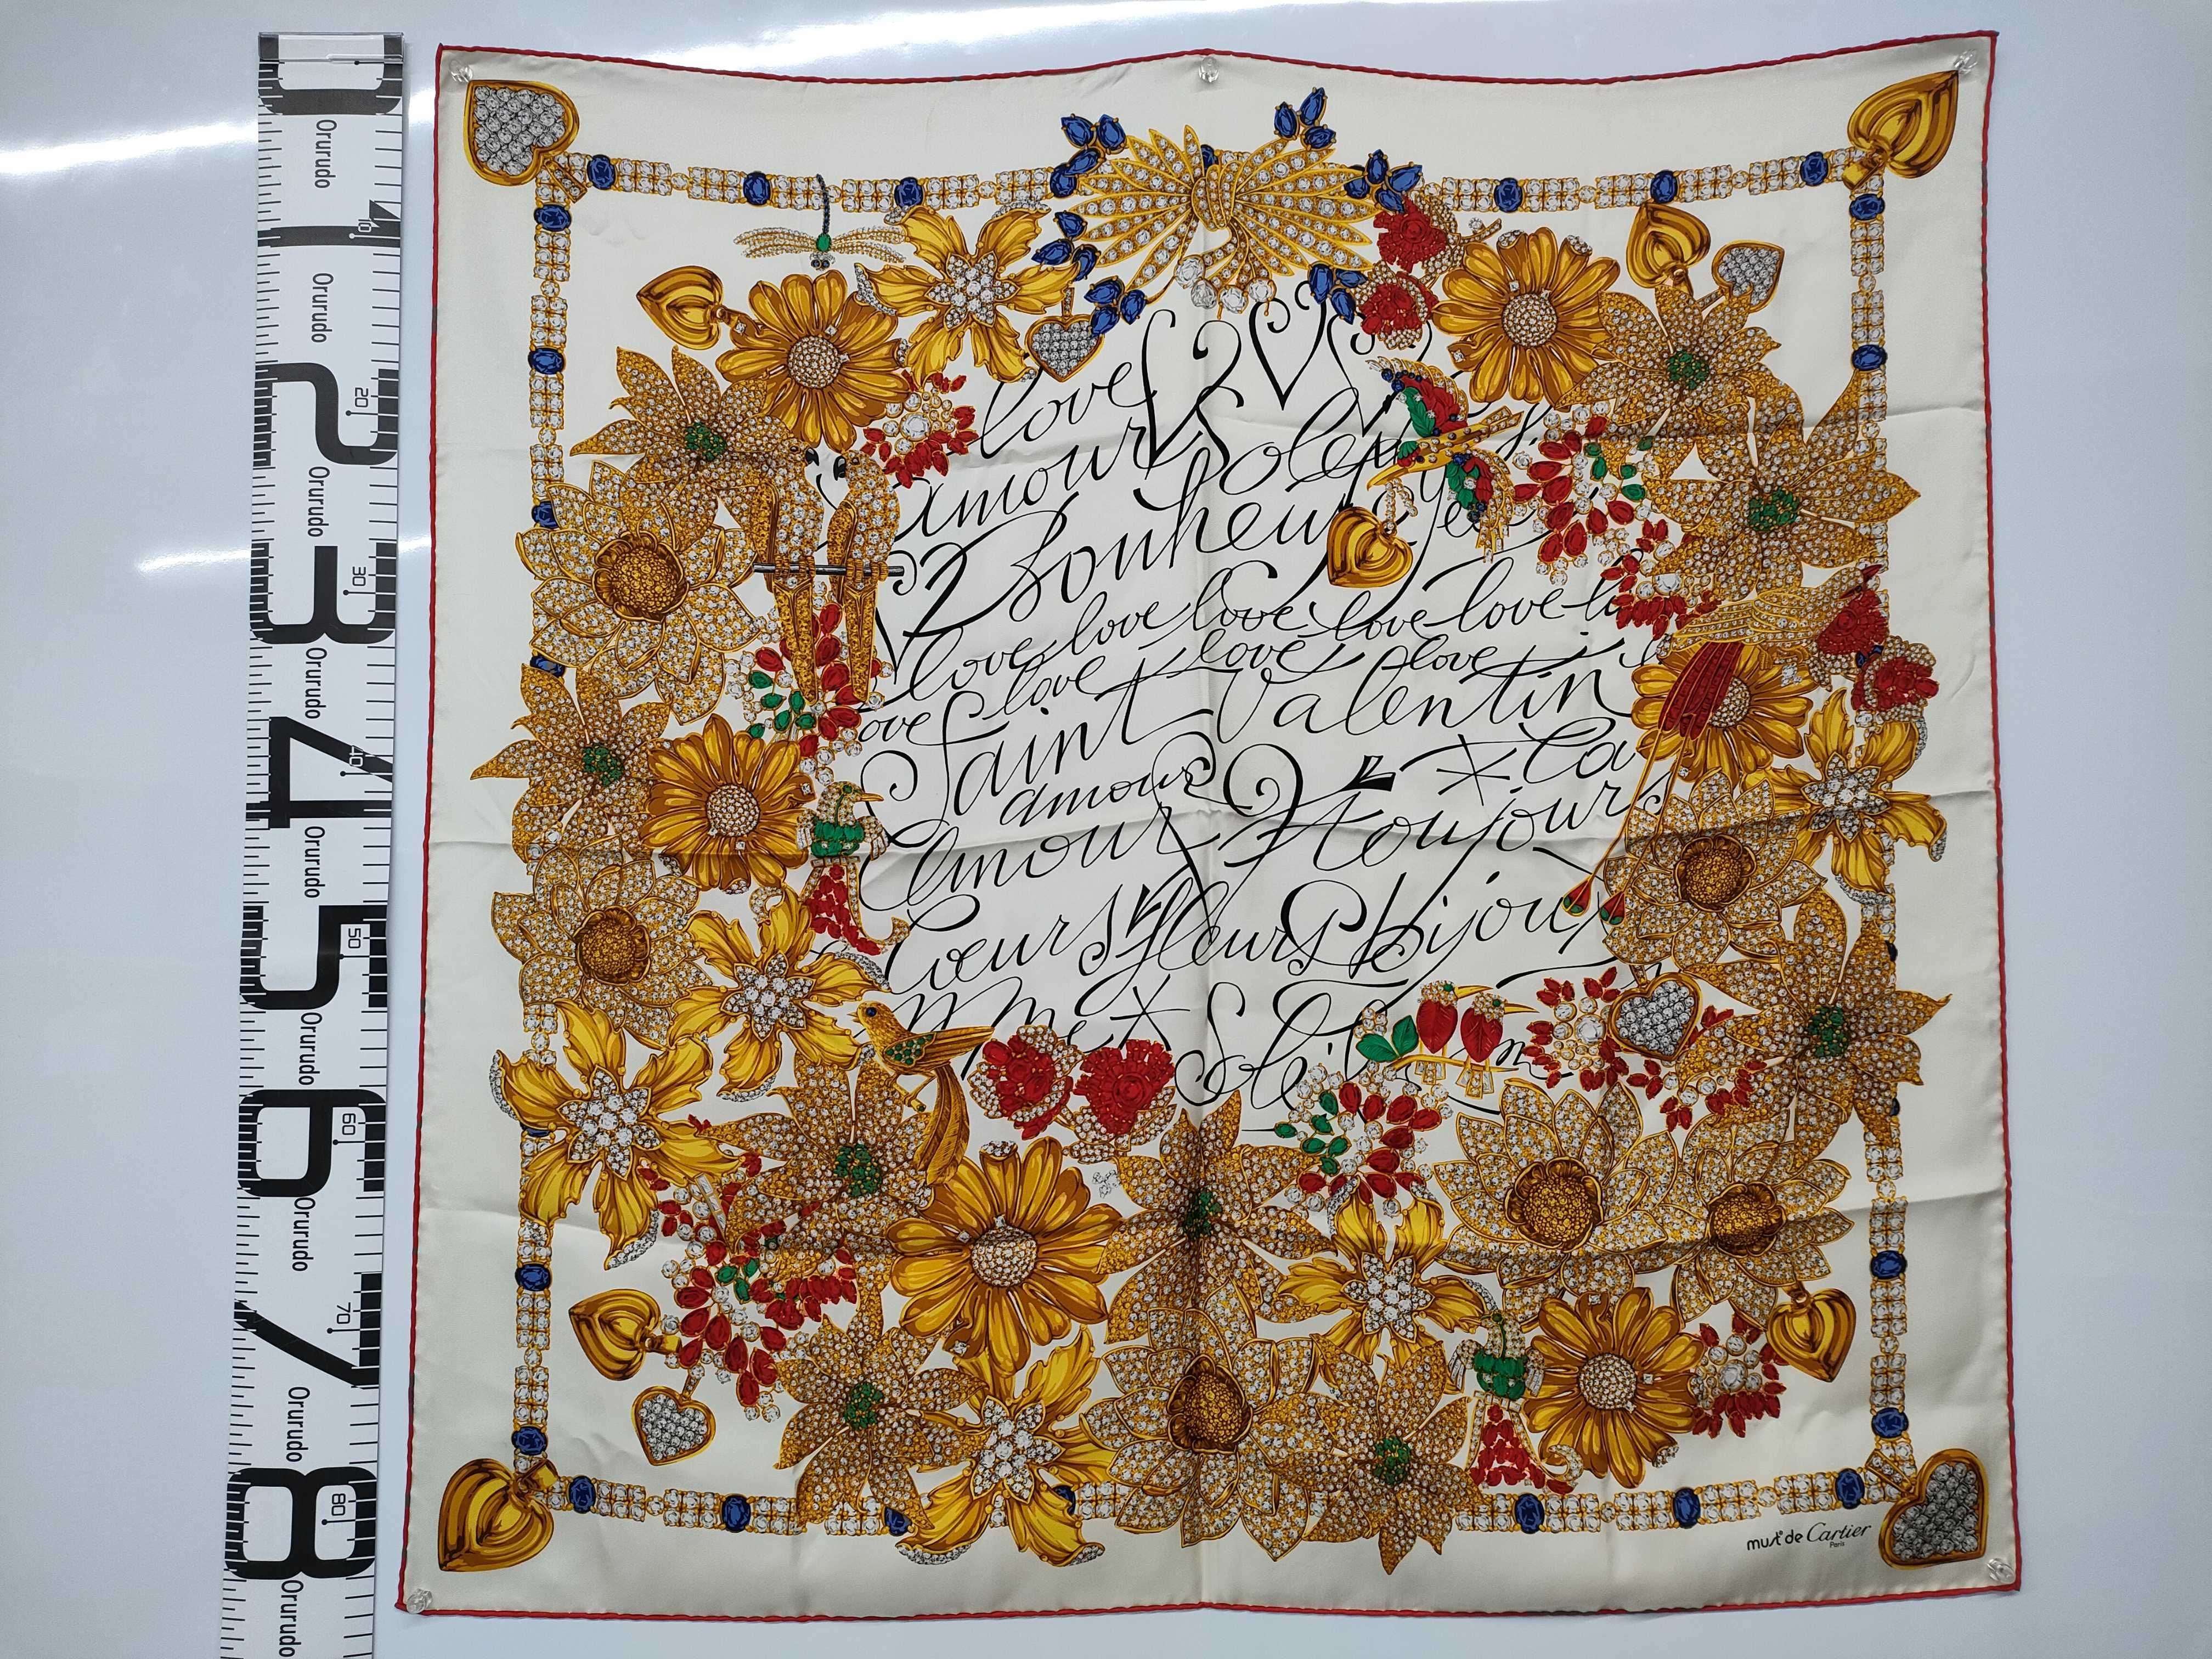 0
Orurudo
10
1
Orurudo
20
2
Orurudo
30
3
Orurudo
40
4
Orurudo
50
5
Orurudo
60
6
Orurudo
70
7
Orurudo
80
8
Orurudo
love
amour Soleil
Bonheur
love love love love love
love love love
ove Saint Valentin
amour * La
Amour toujours
Cœurs fleurs bijoux
must de Cartier
Paris